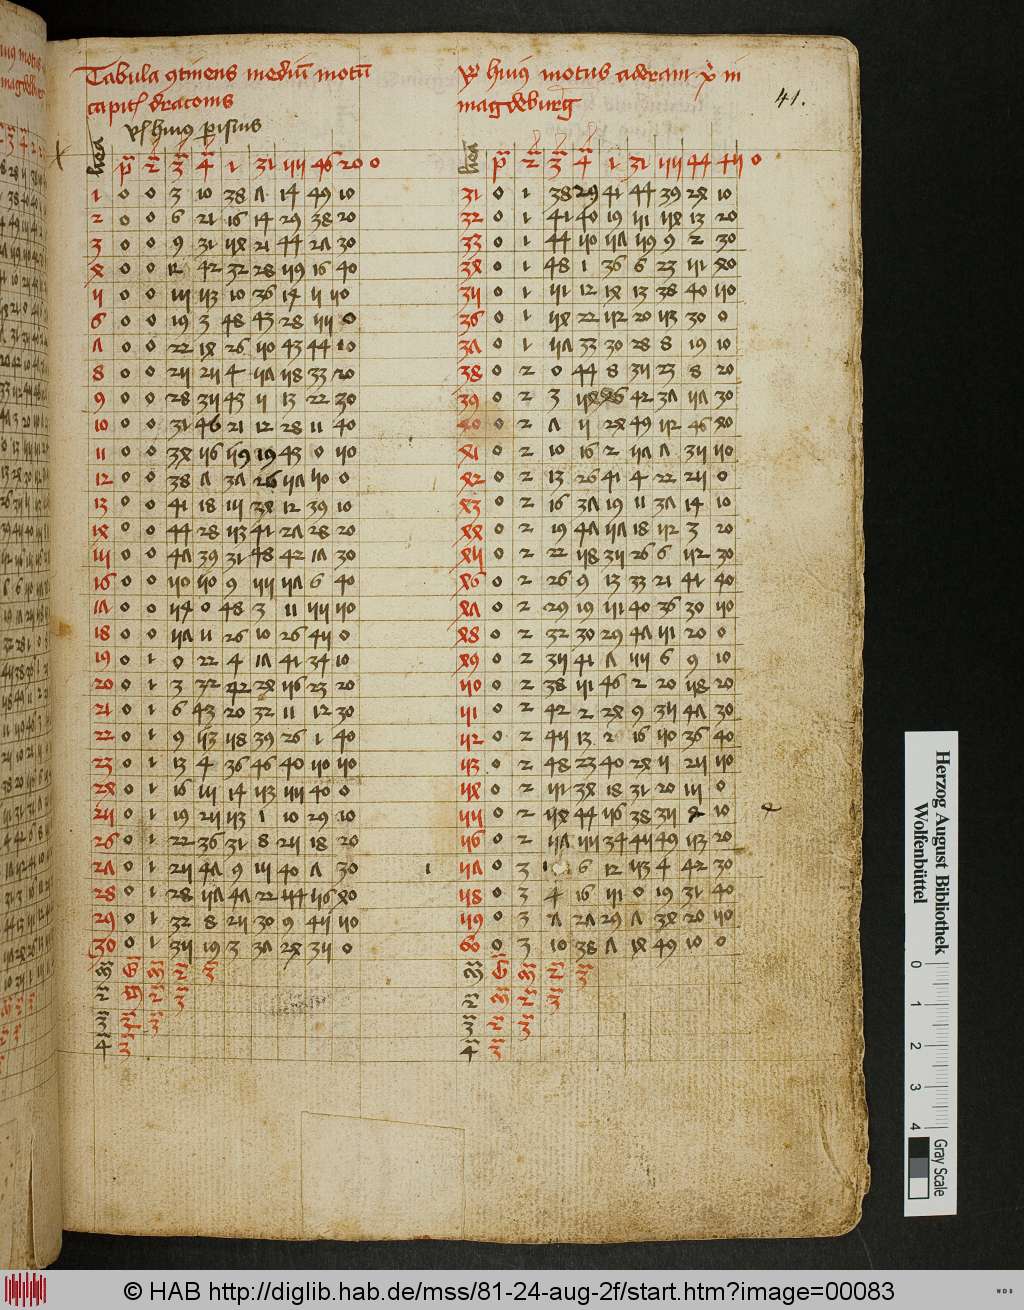 Tabula gtinens mediũ motũ
capitis draconis
vl' huius p̄isius
hoa p 2 3 4 1 31 55 46 20 0
1 0 0 3 10 38 7 14 49 10
2 0 0 6 21 16 14 29 38 20
3 0 0 9 31 54 21 44 27 30
4 0 0 12 42 32 28 59 16 40
5 0 0 15 53 10 36 14 5 50
6 0 0 19 3 48 43 28 55 0
7 0 0 22 14 26 50 43 44 10
8 0 0 25 25 4 57 58 33 20
9 0 0 28 35 43 5 13 22 30
10 0 0 31 46 21 12 28 11 40
11 0 0 34 56 59 19 43 0 50
12 0 0 38 7 37 26 57 50 0
13 0 0 41 18 15 34 12 39 10
14 0 0 44 28 53 41 27 28 20
15 0 0 47 39 31 48 42 17 30
16 0 0 50 50 9 55 57 6 40
17 0 0 54 0 48 3 11 55 50
18 0 0 57 11 26 10 26 45 0
19 0 1 0 22 4 17 41 34 10
20 0 1 3 32 42 24 56 23 20
21 0 1 6 43 20 32 11 12 30
22 0 1 9 53 58 39 26 1 40
23 0 1 13 4 36 46 40 50 50
24 0 1 16 15 14 53 55 40 0
25 0 1 19 25 53 1 10 29 10
26 0 1 22 36 31 8 25 18 20
27 0 1 25 47 9 15 40 7 30
28 0 1 28 57 47 22 54 56 40
29 0 1 32 8 25 30 9 45 50
30 0 1 35 19 3 37 24 35 0
huius motus ad eram in
magdeburg
41.
hoa p 2 3 4 1 31 55 44 45 0
31 0 1 38 29 41 44 39 24 10
32 0 1 41 40 19 51 54 13 20
33 0 1 44 50 57 59 9 2 30
34 0 1 48 1 36 6 23 51 40
35 0 1 51 12 14 13 38 40 50
36 0 1 54 22 52 20 53 30 0
37 0 1 57 33 30 28 8 19 10
38 0 2 0 44 8 35 23 8 20
39 0 2 3 54 46 42 37 57 30
40 0 2 7 5 24 49 52 46 40
41 0 2 10 16 2 57 7 35 50
42 0 2 13 26 41 4 22 25 0
43 0 2 16 37 19 11 37 14 10
44 0 2 19 47 57 18 52 3 20
45 0 2 22 58 35 26 6 52 30
46 0 2 26 9 13 33 21 41 40
47 0 2 29 19 51 40 36 30 50
48 0 2 32 30 29 47 51 20 0
49 0 2 35 41 7 55 6 9 10
50 0 2 38 51 46 2 20 58 20
51 0 2 42 2 24 9 35 47 30
52 0 2 45 13 2 16 50 36 40
53 0 2 48 23 40 24 5 25 50
54 0 2 51 34 18 31 20 15 0
55 0 2 54 44 56 38 35 10
56 0 2 57 55 34 45 49 53 20
57 0 3 1 6 12 53 4 42 30
58 0 3 4 16 51 0 19 31 40
59 0 3 7 27 29 7 34 20 50
60 0 3 10 38 7 14 49 10 0
Herzog August Bibliothek
Wolfenbüttel
0 1 2 3 4
Gray Scale
© HAB http://diglib.hab.de/mss/81-24-aug-2f/start.htm?image=00083